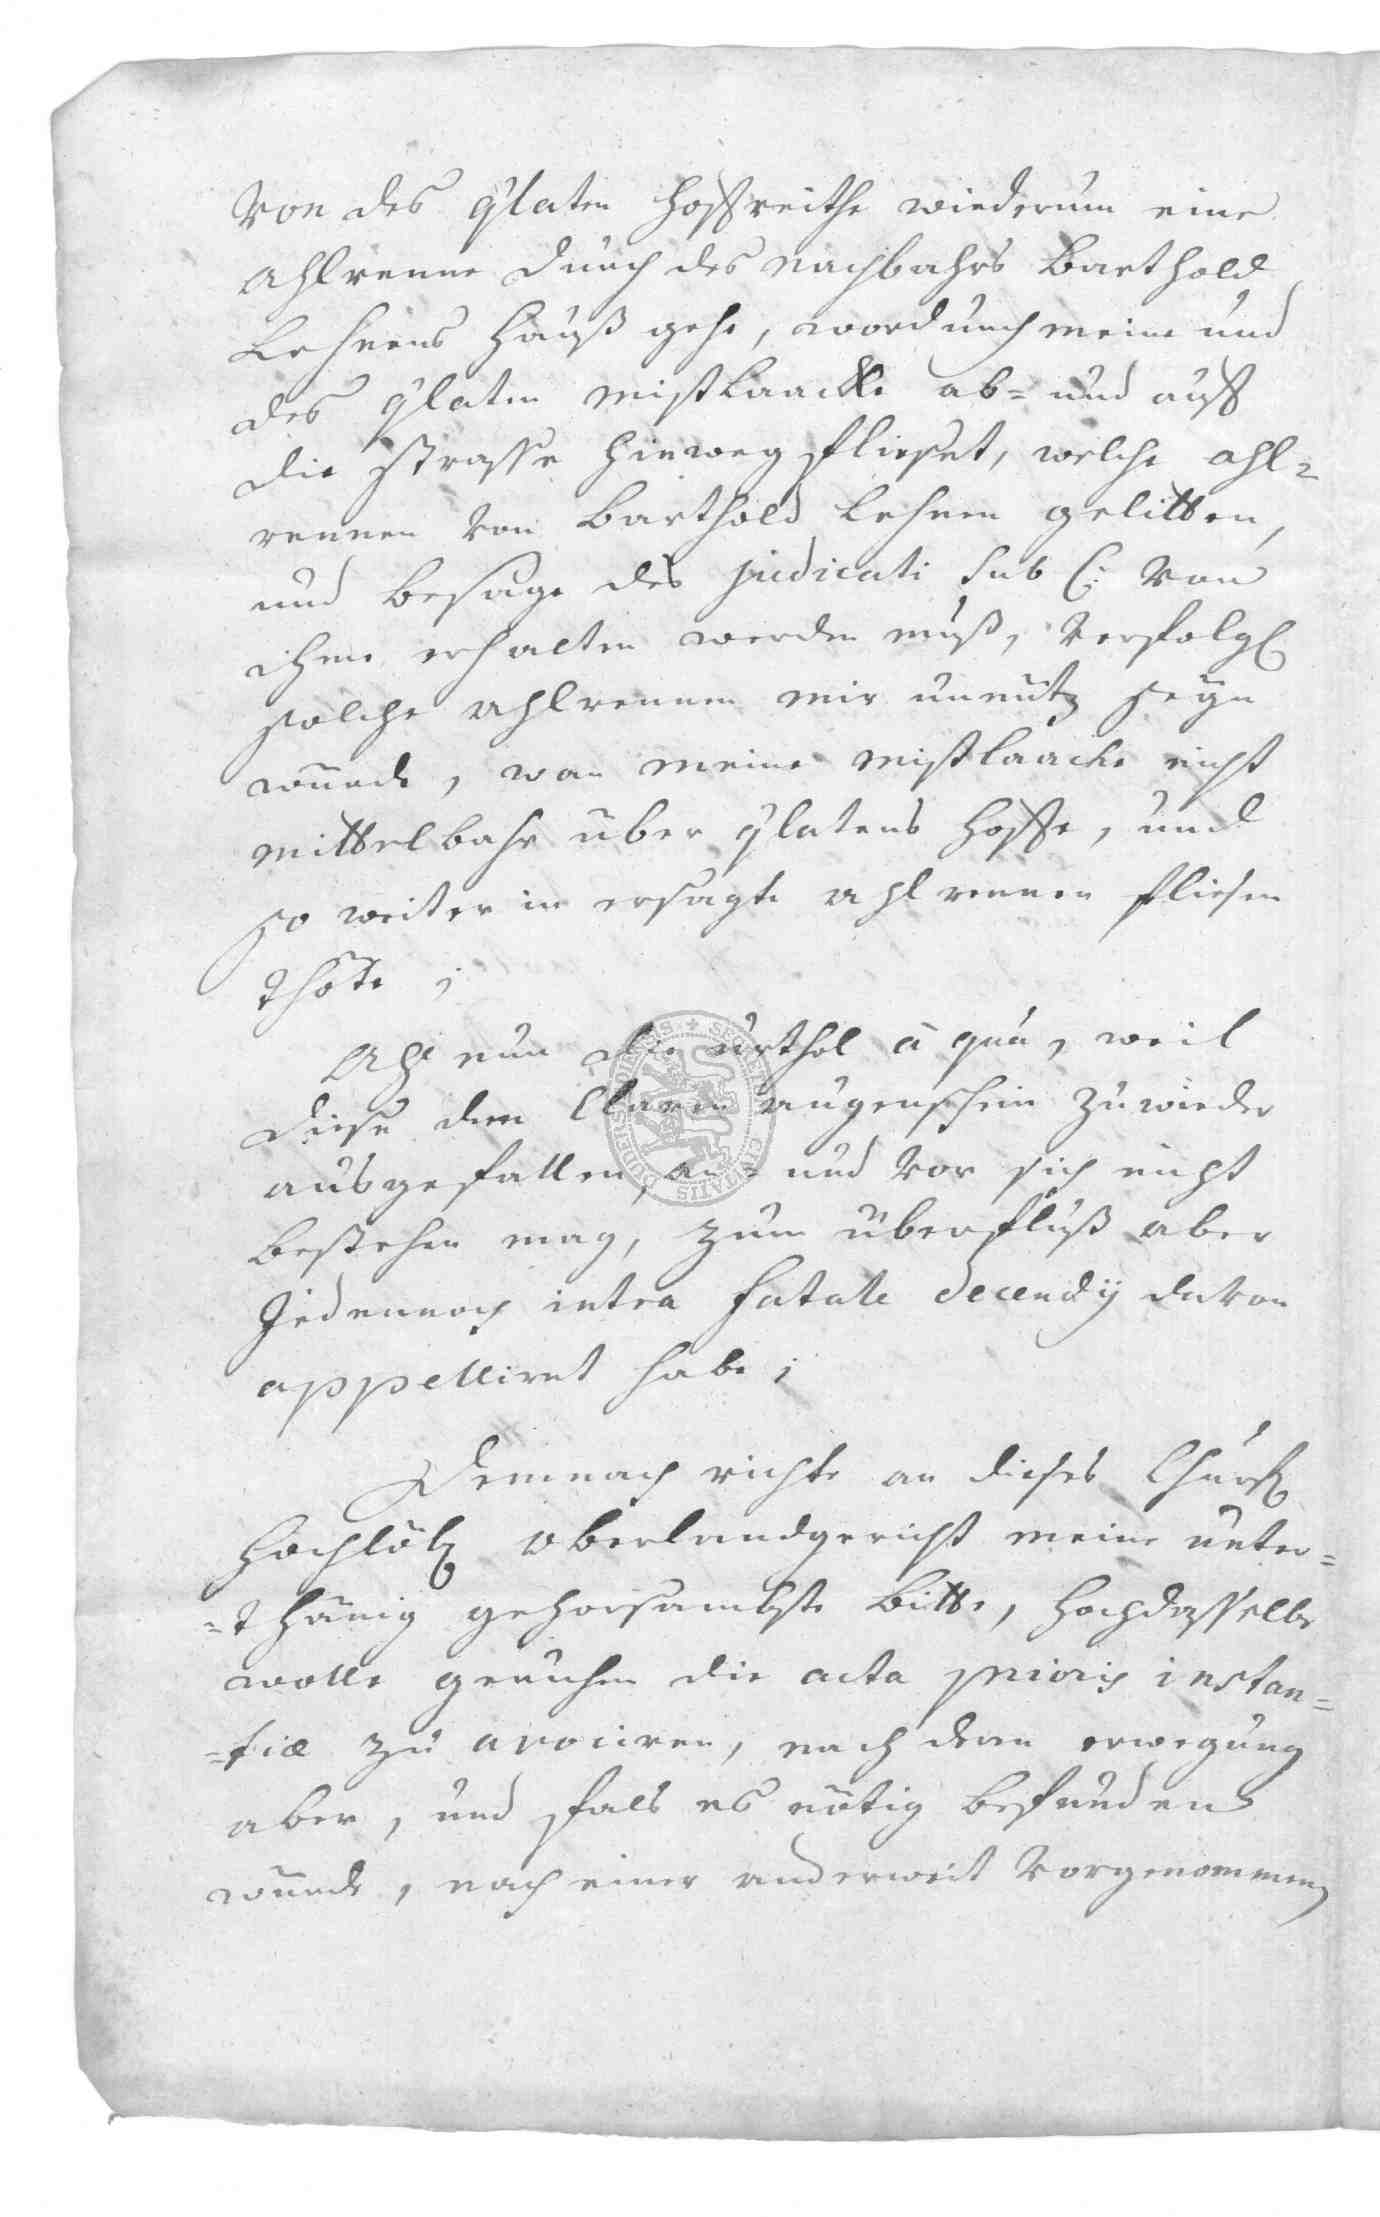 von des Platen Hoffreithe wiederum eine
Ahlrenne durch des Nachbahrs Barthold
Lehnens Hauß gehe, wordurch meine und
des Platen Mistlaacke ab= und auff
die Strasse hinweg flieset, welche Ahl=
rennen von Barthold Lehnen gelitten,
und besage des judicati sub C: von
ihme erhalten werden muß, verfolgl
solche Ahlrennen mir unnütz seyn
würde, wan meine Mistlaacke nicht
mittelbahr über Platens Hoffe, und
so weiter in ersagte Ahlrennen fliesen
thäte;
Alß nun die Urthel à quâ, weil
diese dem Claren Augenschein zuwieder
ausgefallen, an= und vor sich nicht
bestehen mag, zum überfluß aber
Jedennoch intra fatale decendij davon
appelliret habe;
Demnach richte an dieses Churfl
Hochlöbl Oberlandgericht meine unter=
=thänig gehorsambste Bitte, Hochdasselbe
wolle geruhen die acta prioris instan=
=tiæ zu avociren, nach deren erwegung
aber, und fals es nötig befunden
würde, nach einer anderweit vorgenommen
SECRET CIVITATIS DUDERSTADENSIS